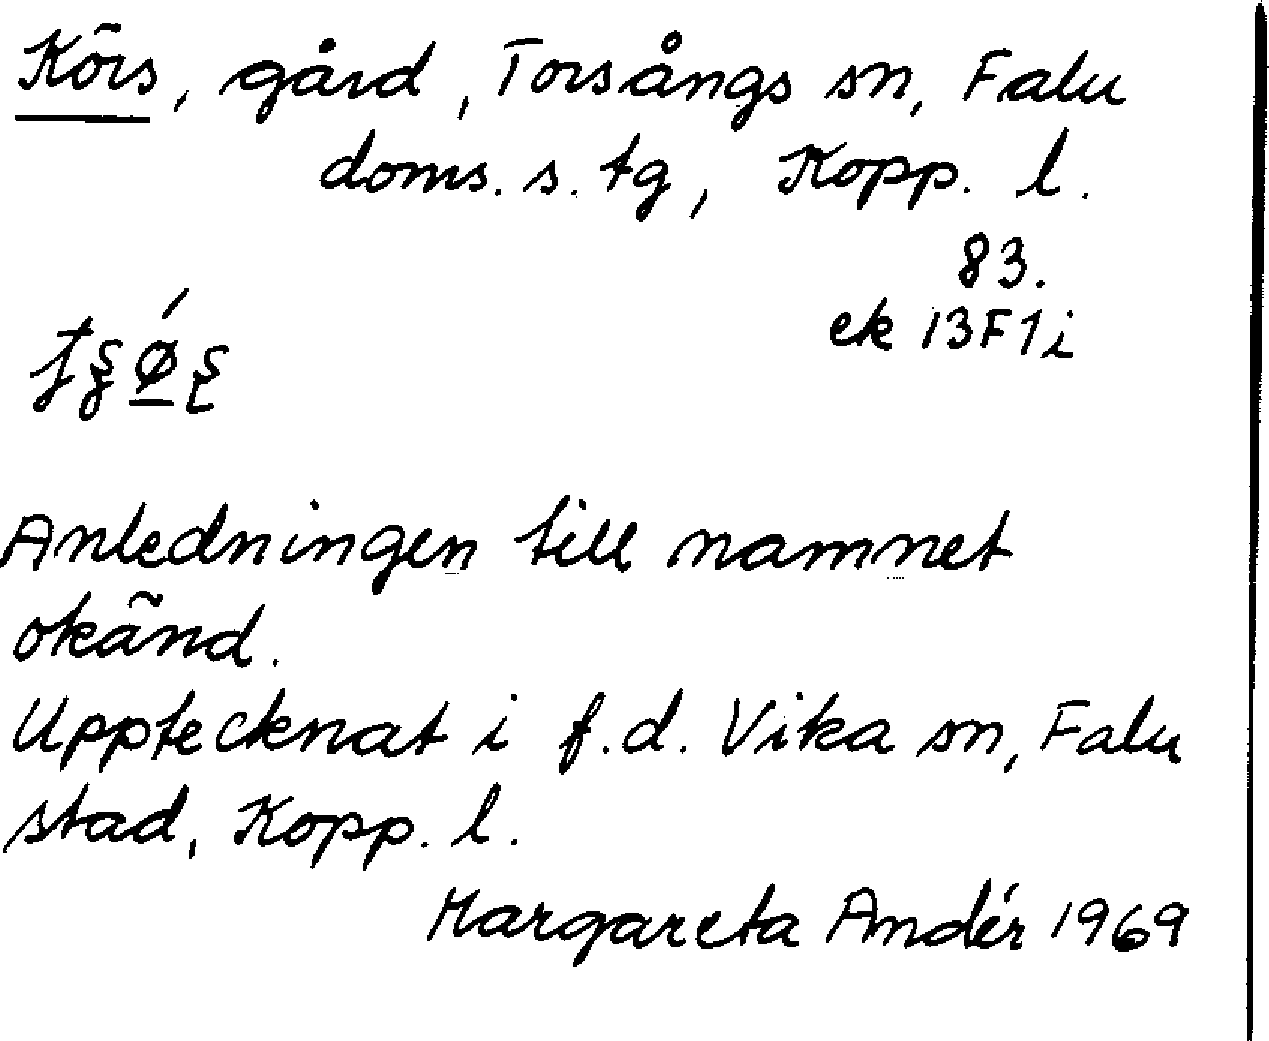 Körs, gård, Torsångs sn, Falu
doms. s. tg, Kopp. l.
83.
ek 13F1i
Anledningen till namnet
okänd.
Upptecknat i f.d. Vika sn, Falu
stad, Kopp. l.
Margareta Andér 1969